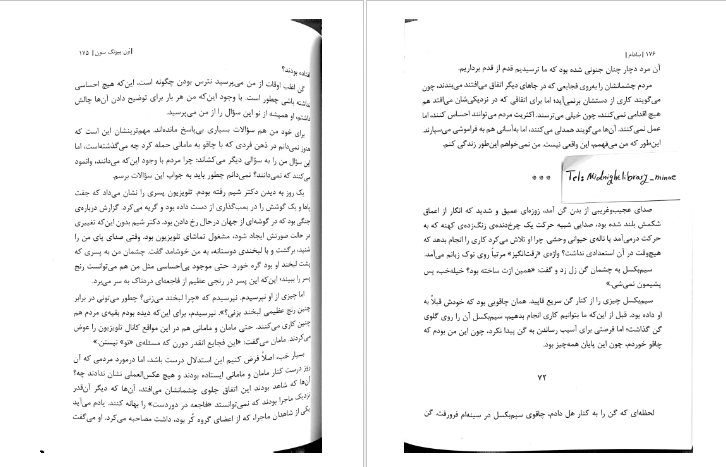 ۱۷۶ | بادام |
آن مرد دچار چنان جنونی شده بود که ما ترسیدیم قدم از قدم برداریم.
مردم چشمانشان را به‌روی فجایعی که در جاهای دیگر اتفاق می‌افتند می‌بندند، چون
می‌گویند کاری از دستشان برنمی‌آید؛ اما برای اتفاقی که در نزدیکی‌شان می‌افتد هم
هیچ اقدامی نمی‌کنند، چون خیلی می‌ترسند. اکثریت مردم می‌توانند احساس کنند، اما
عمل نمی‌کنند. آن‌ها می‌گویند همدلی می‌کنند، اما به‌آسانی هم به فراموشی می‌سپارند.
این‌طور که من می‌فهمم، این واقعی نیست. من نمی‌خواهم این‌طور زندگی کنم.
***
Tel: Midnightlibrary_minoe
صدای عجیب‌وغریبی از بدن گن آمد، زوزه‌ای عمیق و شدید که انگار از اعماق
شکمش بلند شده بود، صدایی شبیه حرکت یک چرخ‌دنده‌ی زنگ‌زده‌ی کهنه که به
حرکت درمی‌آمد یا ناله‌ی حیوانی وحشی. چرا او تلاش می‌کرد کاری را انجام بدهد که
هیچ‌وقت در آن استعدادی نداشت؟ واژه‌ی «رقت‌انگیز» مرتباً روی نوک زبانم می‌آمد.
سیم‌بکسل به چشمان گن زل زد و گفت: «همین ازت ساخته بود؟ خیله‌خب، پس
پشیمون نمی‌شی.»
سیم‌بکسل چیزی را از کنار گن سریع قاپید. همان چاقویی بود که خودش قبلاً به
او داده بود. قبل از این‌که ما بتوانیم کاری انجام بدهیم، سیم‌بکسل آن را روی گلوی
گن گذاشت؛ اما فرصتی برای آسیب رساندن به گن پیدا نکرد، چون این من بودم که
چاقو خوردم، چون این پایان همه‌چیز بود.
۷۲
لحظه‌ای که گن را به کنار هل دادم، چاقوی سیم‌بکسل در سینه‌ام فرورفت. گن
| ون پیونگ سون | ۱۷۵
افتاده بودند؟
گن اغلب اوقات از من می‌پرسید نترس بودن چگونه است، این‌که هیچ احساسی
نداشته باشی چطور است. با وجود این‌که من هر بار برای توضیح دادن آن‌ها چالش
داشتم، او همیشه از نو این سؤال را از من می‌پرسید.
برای خود من هم سؤالات بسیاری بی‌پاسخ مانده‌اند. مهم‌ترینشان این است که
هنوز نمی‌دانم در ذهن فردی که با چاقو به مامانی حمله کرد چه می‌گذشته‌است، اما
این سؤال من را به سؤالی دیگر می‌کشاند: چرا مردم با وجود این‌که می‌دانند، وانمود
می‌کنند که نمی‌دانند؟ نمی‌دانم چطور باید به جواب این سؤالات برسم.
یک روز به دیدن دکتر شیم رفته بودم. تلویزیون پسری را نشان می‌داد که جفت
پاها و یک گوشش را در بمب‌گذاری از دست داده بود و گریه می‌کرد. گزارش درباره‌ی
جنگی بود که در گوشه‌ای از جهان درحال رخ دادن بود. دکتر شیم بدون این‌که تغییری
در حالت صورتش ایجاد شود، مشغول تماشای تلویزیون بود. وقتی صدای پای من را
شنید، برگشت و با لبخندی دوستانه، به من خوشامد گفت. چشمان من به پسری که
پشت لبخند او بود گره خورد. حتی موجود بی‌احساسی مثل من هم می‌توانست رنج
پسر را ببیند؛ این‌که این پسر در رنجی عظیم از فاجعه‌ای دردناک به سر می‌برد.
اما چیزی از او نپرسیدم. نپرسیدم که «چرا لبخند می‌زنی؟ چطور می‌تونی در برابر
چنین رنج عظیمی لبخند بزنی؟». نپرسیدم، برای این‌که دیده بودم بقیه‌ی مردم هم
چنین کاری می‌کنند. حتی مامان و مامانی هم در این مواقع کانال تلویزیون را عوض
می‌کردند. مامان می‌گفت: «این فجایع انقدر دورن که مسئله‌ی «تو» نیستن.»
بسیار خب، اصلاً فرض کنیم این استدلال درست باشد، اما درمورد مردمی که آن
روز درست کنار مامان و مامانی ایستاده بودند و هیچ عکس‌العملی نشان ندادند چه؟
آن‌ها که شاهد بودند این اتفاق جلوی چشمانشان می‌افتد، آن‌ها که دیگر آن‌قدر
نزدیک ماجرا بودند که نمی‌توانستند «فاجعه در دوردست» را بهانه کنند. یادم می‌آید
یکی از شاهدان ماجرا، که از اعضای گروه کُر بود، داشت مصاحبه می‌کرد. او می‌گفت